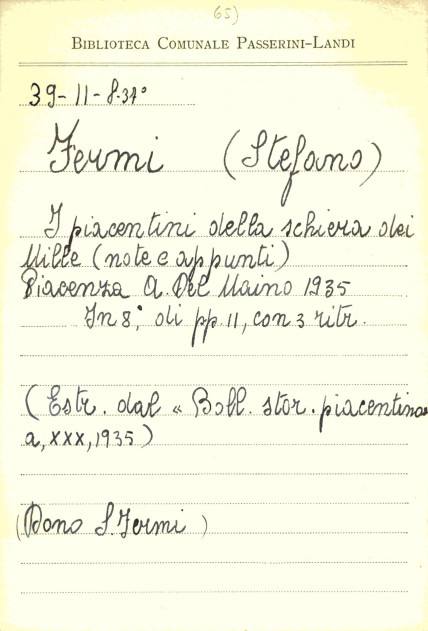 65)
BIBLIOTECA COMUNALE PASSERINI-LANDI
39-11-8.37°
Fermi (Stefano)
I piacentini della schiera dei
Mille (note e appunti)
Piacenza A. Del Maino 1935
In 8°, di pp. 11, con 3 ritr.
(Estr. dal « Boll. stor. piacentino
a, XXX, 1935)
(Dono S. Fermi )